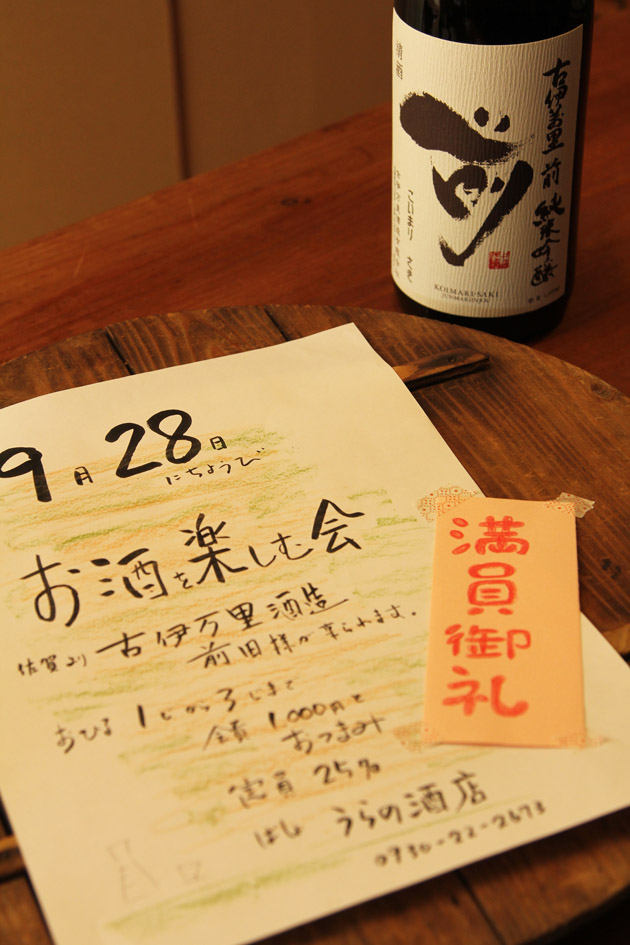 清酒
古伊萬里 前 純米吟醸
前
こいまり さき
KOIMARI SAKI
JUNMAIGINJOU
9月28日
にちようび
お酒を楽しむ会
佐賀より 古伊万里酒造
前田様が来られます。
おひる 1じから3じまで
会費 1,000円と
おつまみ
定員 25名
うらの酒店
0930-22-2673
満員御礼